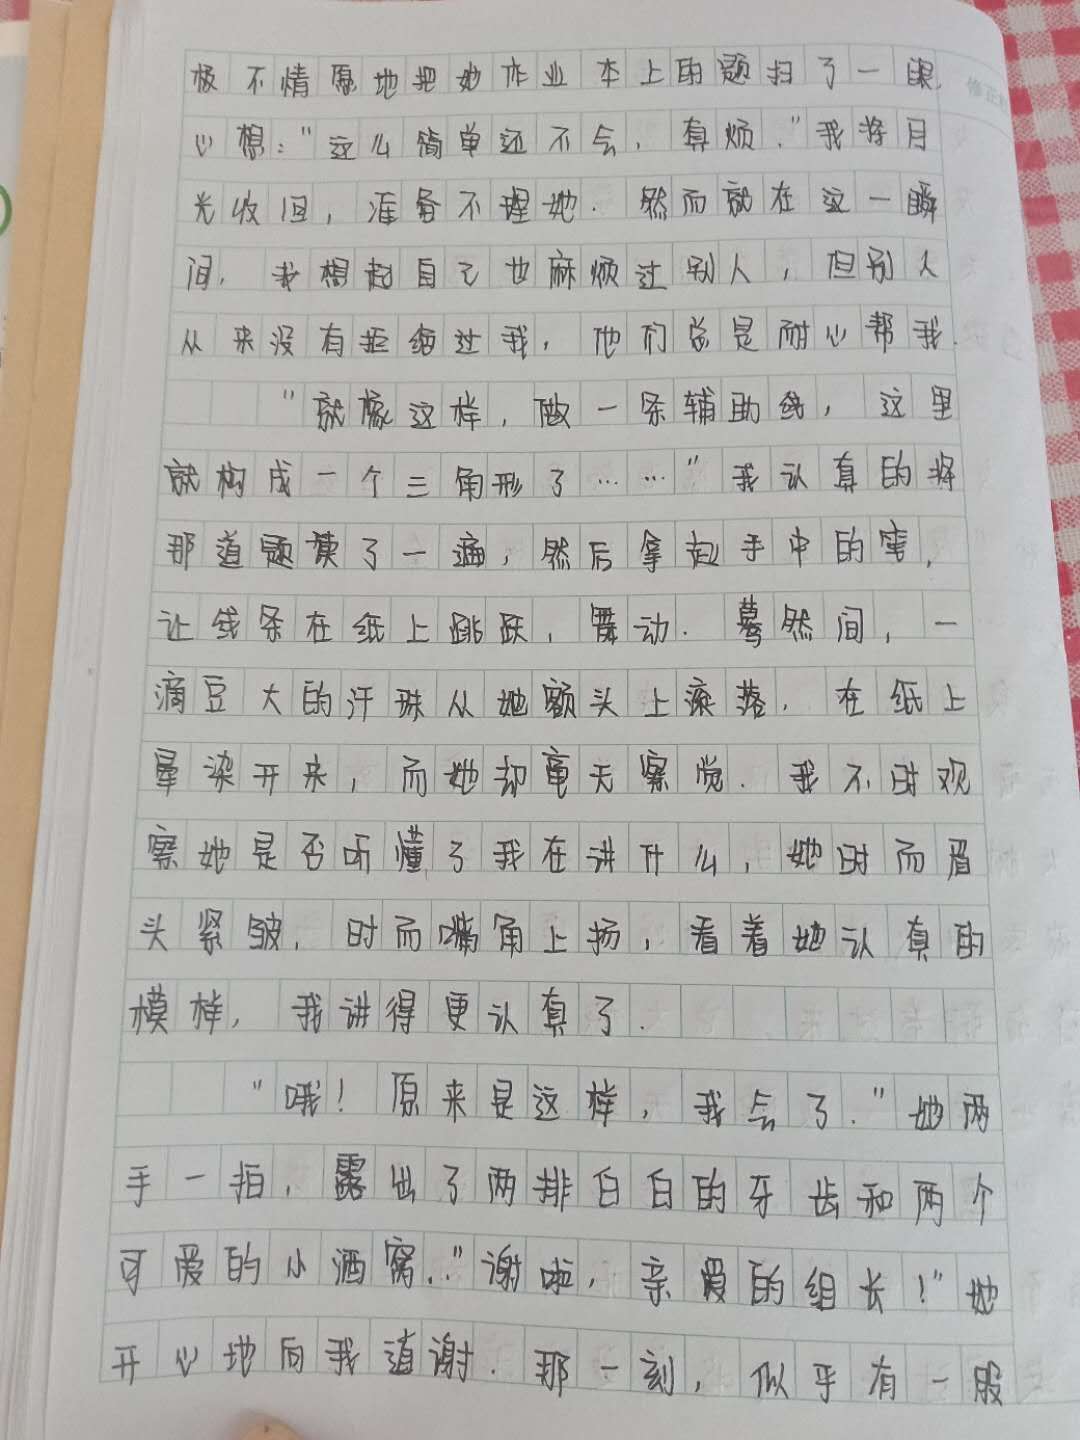 极不情愿地把她作业本上的题扫了一眼,
心想："这么简单还不会，真烦."我将月
光收回，准备不理她.然而就在这一瞬
间，我想起自己也麻烦过别人，但别人
从来没有拒绝过我，他们总是耐心帮我.
"就像这样，做一条辅助线，这里
就构成一个三角形了……"我认真的将
那道题读了一遍，然后拿起手中的笔，
让线条在纸上跳跃，舞动.蓦然间，一
滴豆大的汗珠从她额头上滚落，在纸上
晕染开来，而她却毫无察觉.我不时观
察她是否听懂了我在讲什么，她时而眉
头紧皱，时而嘴角上扬，看着她认真的
模样，我讲得更认真了.
"哦！原来是这样，我会了."她两
手一拍，露出了两排白白的牙齿和两个
可爱的小酒窝."谢啦，亲爱的组长！"她
开心地向我道谢.那一刻，似乎有一股